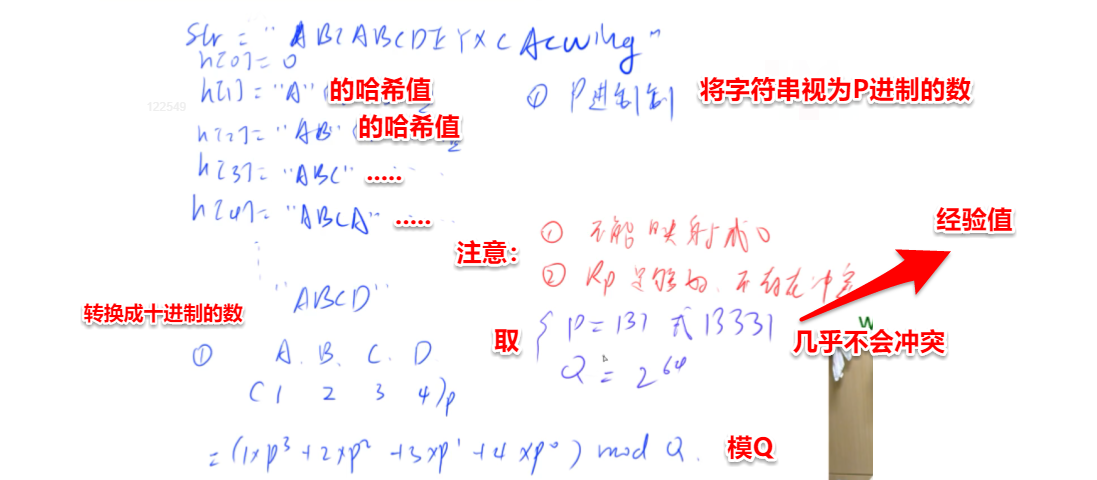 Str = "ABCABCDEYXCAcwing"
h[0]= 0
h[1]= "A" 的哈希值
① P进制 将字符串视为P进制的数
122549
h[2]= "AB" 的哈希值
h[3]= "ABC" .....
h[4]= "ABCA" .....
经验值
注意： ① 不能映射成0
② Rp足够好，不存在冲突
"ABCD"
转换成十进制的数
取 { P = 131 或 13331 几乎不会冲突
Q = 2^64
① A . B . C . D
( 1 2 3 4 )p
= (1×p^3 + 2×p^2 + 3×p^1 + 4×p^0) mod Q. 模Q